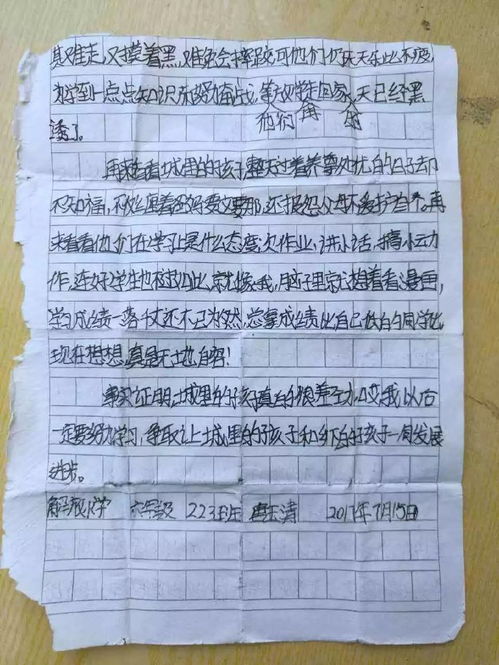 其难走,又摸着黑,难免会摔跤可他们仍庆天乐此不疲,
为学到一点点知识东西努力奋战 等放学后回家,天已经黑
他们再
透了。
再来看看城里的孩子整天过着养尊处优的日子却
不知福,不次
要这要那,还报怨父母不爱护自己,再
来看看他们在学习上是什么态度,欠作业,讲小话,搞小动
作,连好学生也如此,就像我,脑子里就想着看漫画,
学习成绩一落千丈还不已为然,总拿成绩比自己低的同学比,
现在想想,真是无地自容!
事实证明,城里的孩子真的很养生,哎,我以后
一定要努力学习,争取让城里的孩子和乡下的孩子一同发展
进步。
解放小学 六年级 223班 唐玉清 2017年7月15日